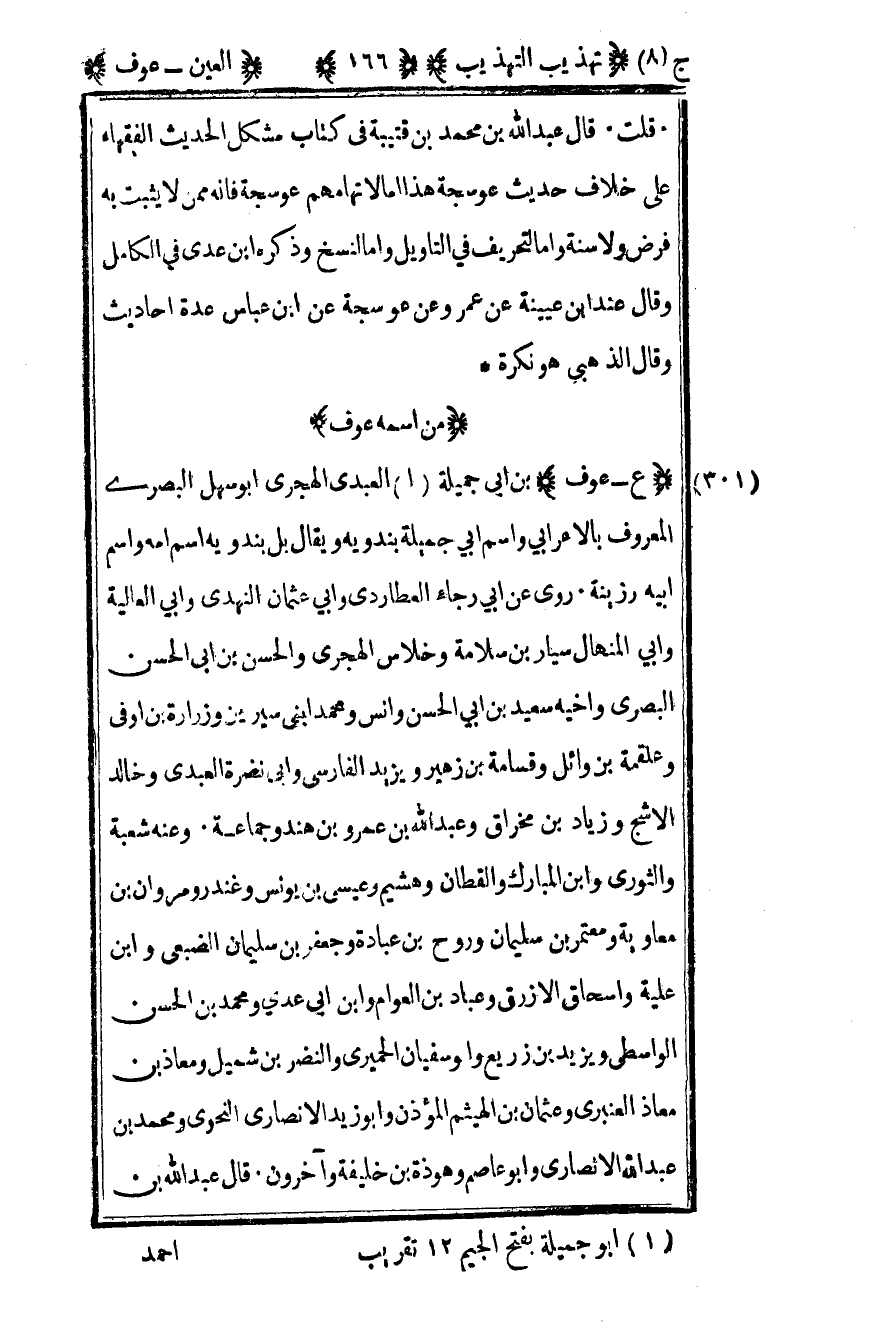 ج (٨) ﴿ تهذيب التهذيب ﴾ ﴿ ١٦٦ ﴾ ﴿ العين ــ عوف ﴾
· قلت · قال عبدالله بن محمد بن قتيبة فى كتاب مشكل الحديث الفقهاء
على خلاف حديث عوسجة هذا امالاتهامهم عوسجة فانه ممن لا يثبت به
فرض ولا سنة واما لتحريف في التاويل واما لنسخ وذكره ابن عدى في الكامل
وقال عند ابن عيينة عن عمر وعن عوسجة عن ابن عباس عدة احاديث
وقال الذهبي هو نكرة *
﴿ من اسمه عوف ﴾
(٣٠١) ﴿ ع ــ عوف ﴾ بن ابى جميلة (١) العبدى الهجرى ابوسهل البصرے
المعروف بالاعرابي واسم ابي جميلة بندويه ويقال بل بندويه اسم امه واسم
ابيه رزينة · روى عن ابي رجاء العطاردى وابي عثمان النهدى وابي العالية
وابي المنهال سيار بن سلامة وخلاس الهجرى والحسن بن ابى الحسن
البصرى واخيه سعيد بن ابي الحسن وانس ومحمد ابنى سيرين وزرارة بن اوفى
وعلقمة بن وائل وقسامة بن زهير ويزيد الفارسى وابى نضرة العبدى وخالد
الاشج وزياد بن مخراق وعبدالله بن عمرو بن هند وجماعــة · وعنه شعبة
والثورى وابن المبارك والقطان وهشيم وعيسى بن يونس وغندرومروان بن
معاوية ومعتمر بن سليمان وروح بن عبادة وجعفر بن سليمان الضبعى وابن
علية واسحاق الازرق وعباد بن العوام وابن ابي عدي ومحمد بن الحسن
الواسطى ويزيد بن زريع وابوسفيان الحميرى والنضر بن شميل ومعاذ بن
معاذ العنبرى وعثمان بن الهيثم المؤذن وابوزيد الانصارى النحوى ومحمد بن
عبدالله الانصارى وابوعاصم وهوذة بن خليفة وآخرون · قال عبدالله بن
(١) ابو جميلة بفتح الجيم ١٢ تقريب
احمد